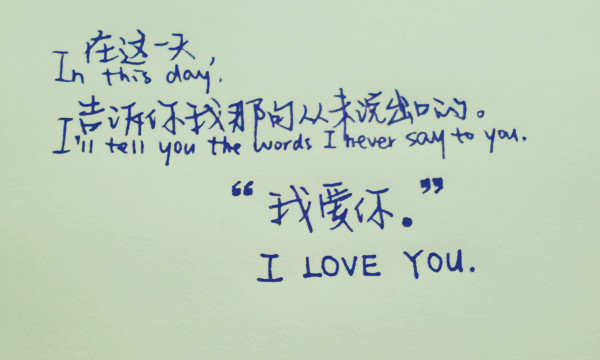 在这一天,
In this day.
告诉你我那句从未说出口的。
I'll tell you the words I never say to you.
“我爱你。”
I LOVE YOU.